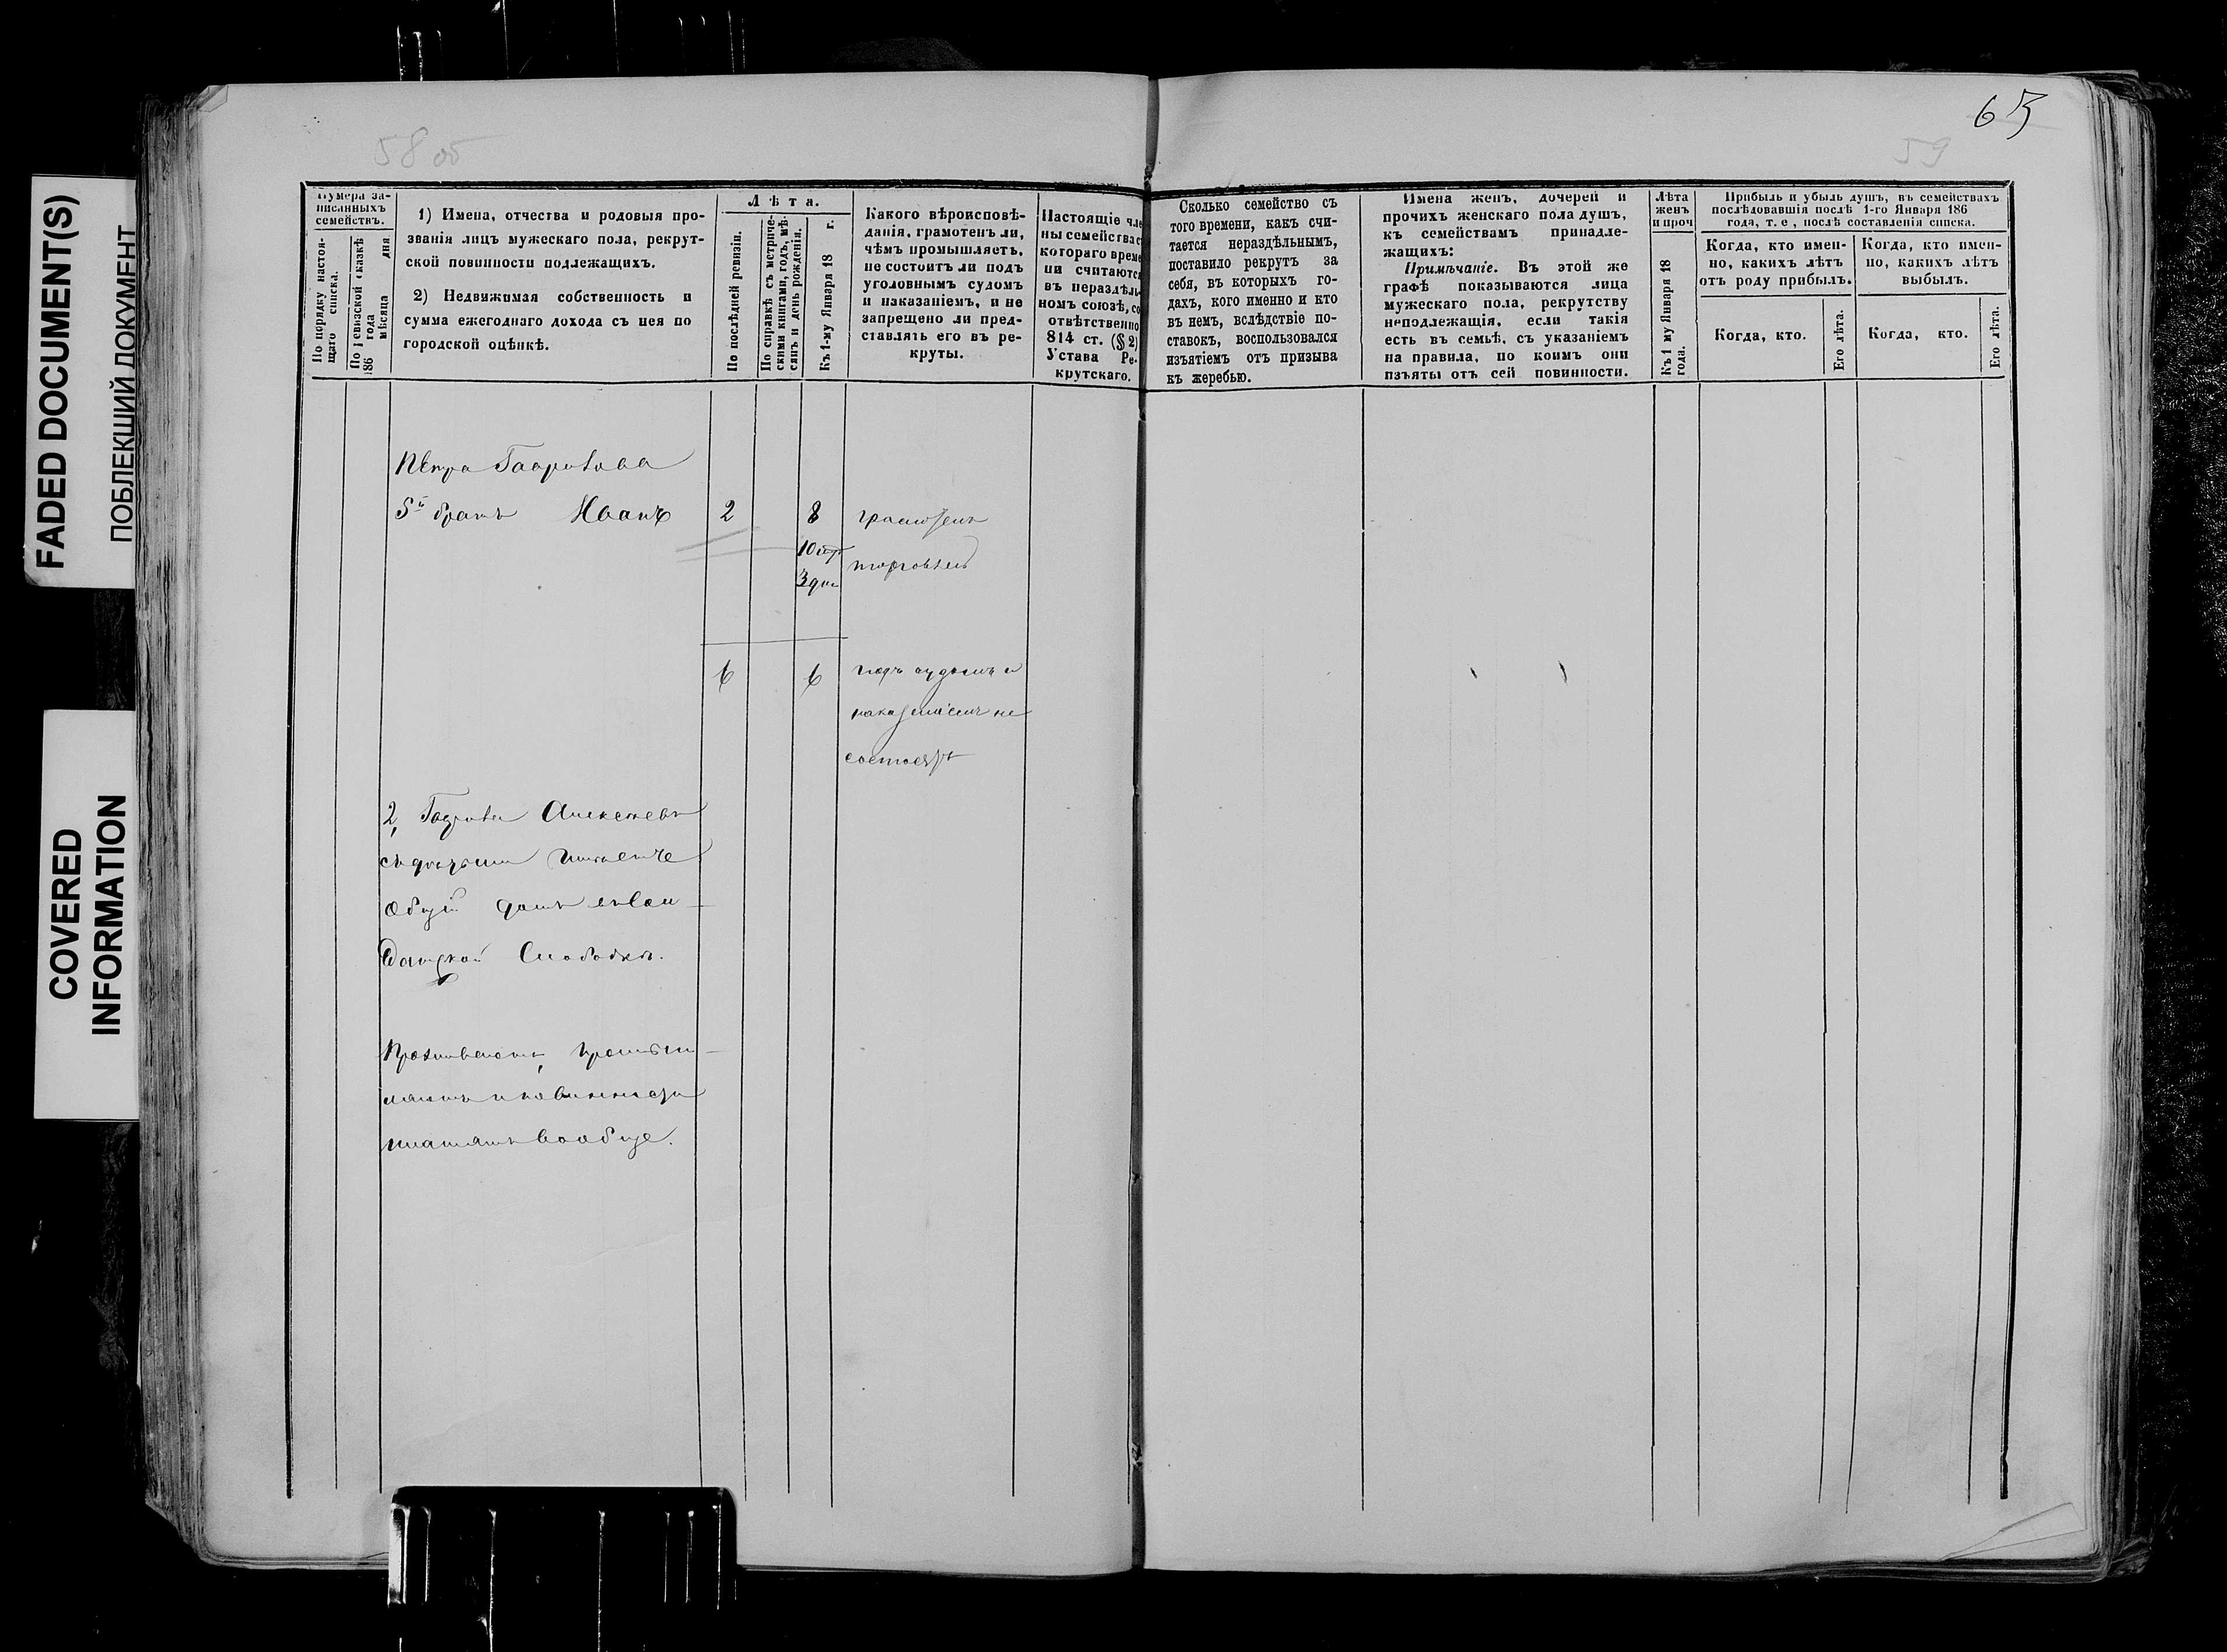 FADED DOCUMENT(S)
ПОБЛЕКШИЙ ДОКУМЕНТ
COVERED
INFORMATION
58 об
59
65
Нумера за-
писанныхъ
семействъ.
По порядку настоя-
щаго списка.
По ревизской сказкѣ
186 года
мѣсяца дня
1) Имена, отчества и родовыя про-
званія лицъ мужескаго пола, рекрут-
ской повинности подлежащихъ.
2) Недвижимая собственность и
сумма ежегоднаго дохода съ нея по
городской оцѣнкѣ.
Лѣта.
По послѣдней ревизіи.
По справкѣ съ метриче-
скими книгами, годъ, мѣ-
сяцъ и день рожденія.
Къ 1-му Января 18 г.
Какого вѣроисповѣ-
данія, грамотенъ ли,
чѣмъ промышляетъ,
не состоитъ ли подъ
уголовнымъ судомъ
и наказаніемъ, и не
запрещено ли пред-
ставлять его въ ре-
круты.
Настоящіе чле
ны семейства с
котораго време
ни считаются
въ нераздѣль-
номъ союзѣ, со
отвѣтственно
814 ст. (§ 2)
Устава Ре-
крутскаго.
Сколько семейство съ
того времени, какъ счи-
тается нераздѣльнымъ,
поставило рекрутъ за
себя, въ которыхъ го-
дахъ, кого именно и кто
въ немъ, вслѣдствіе по-
ставокъ, воспользовался
изъятіемъ отъ призыва
къ жеребью.
Имена женъ, дочерей и
прочихъ женскаго пола душъ,
къ семействамъ принадле-
жащихъ:
Примѣчаніе. Въ этой же
графѣ показываются лица
мужескаго пола, рекрутству
неподлежащія, если такія
есть въ семьѣ, съ указаніемъ
на правила, по коимъ они
изъяты отъ сей повинности.
Лѣта
женъ
и проч
Къ 1 му Января 18
года.
Прибыль и убыль душъ, въ семействахъ
послѣдовавшія послѣ 1-го Января 186
года, т. е., послѣ составленія списка.
Когда, кто имен-
но, какихъ лѣтъ
отъ роду прибылъ.
Когда, кто имен-
но, какихъ лѣтъ
выбылъ.
Когда, кто.
Его лѣта.
Когда, кто.
Его лѣта.
Петра Гаврилова
5й братъ Иванъ 2 8 грамотенъ
10 торговлею
3 дни
6 6 подъ судомъ и
наказаніемъ не
состоятъ
2, Гаврила Алексеевъ
общій домъ въ Сал-
датской Слободкѣ.
Проживаютъ, промыш-
ляютъ и повинности
платятъ вообще.